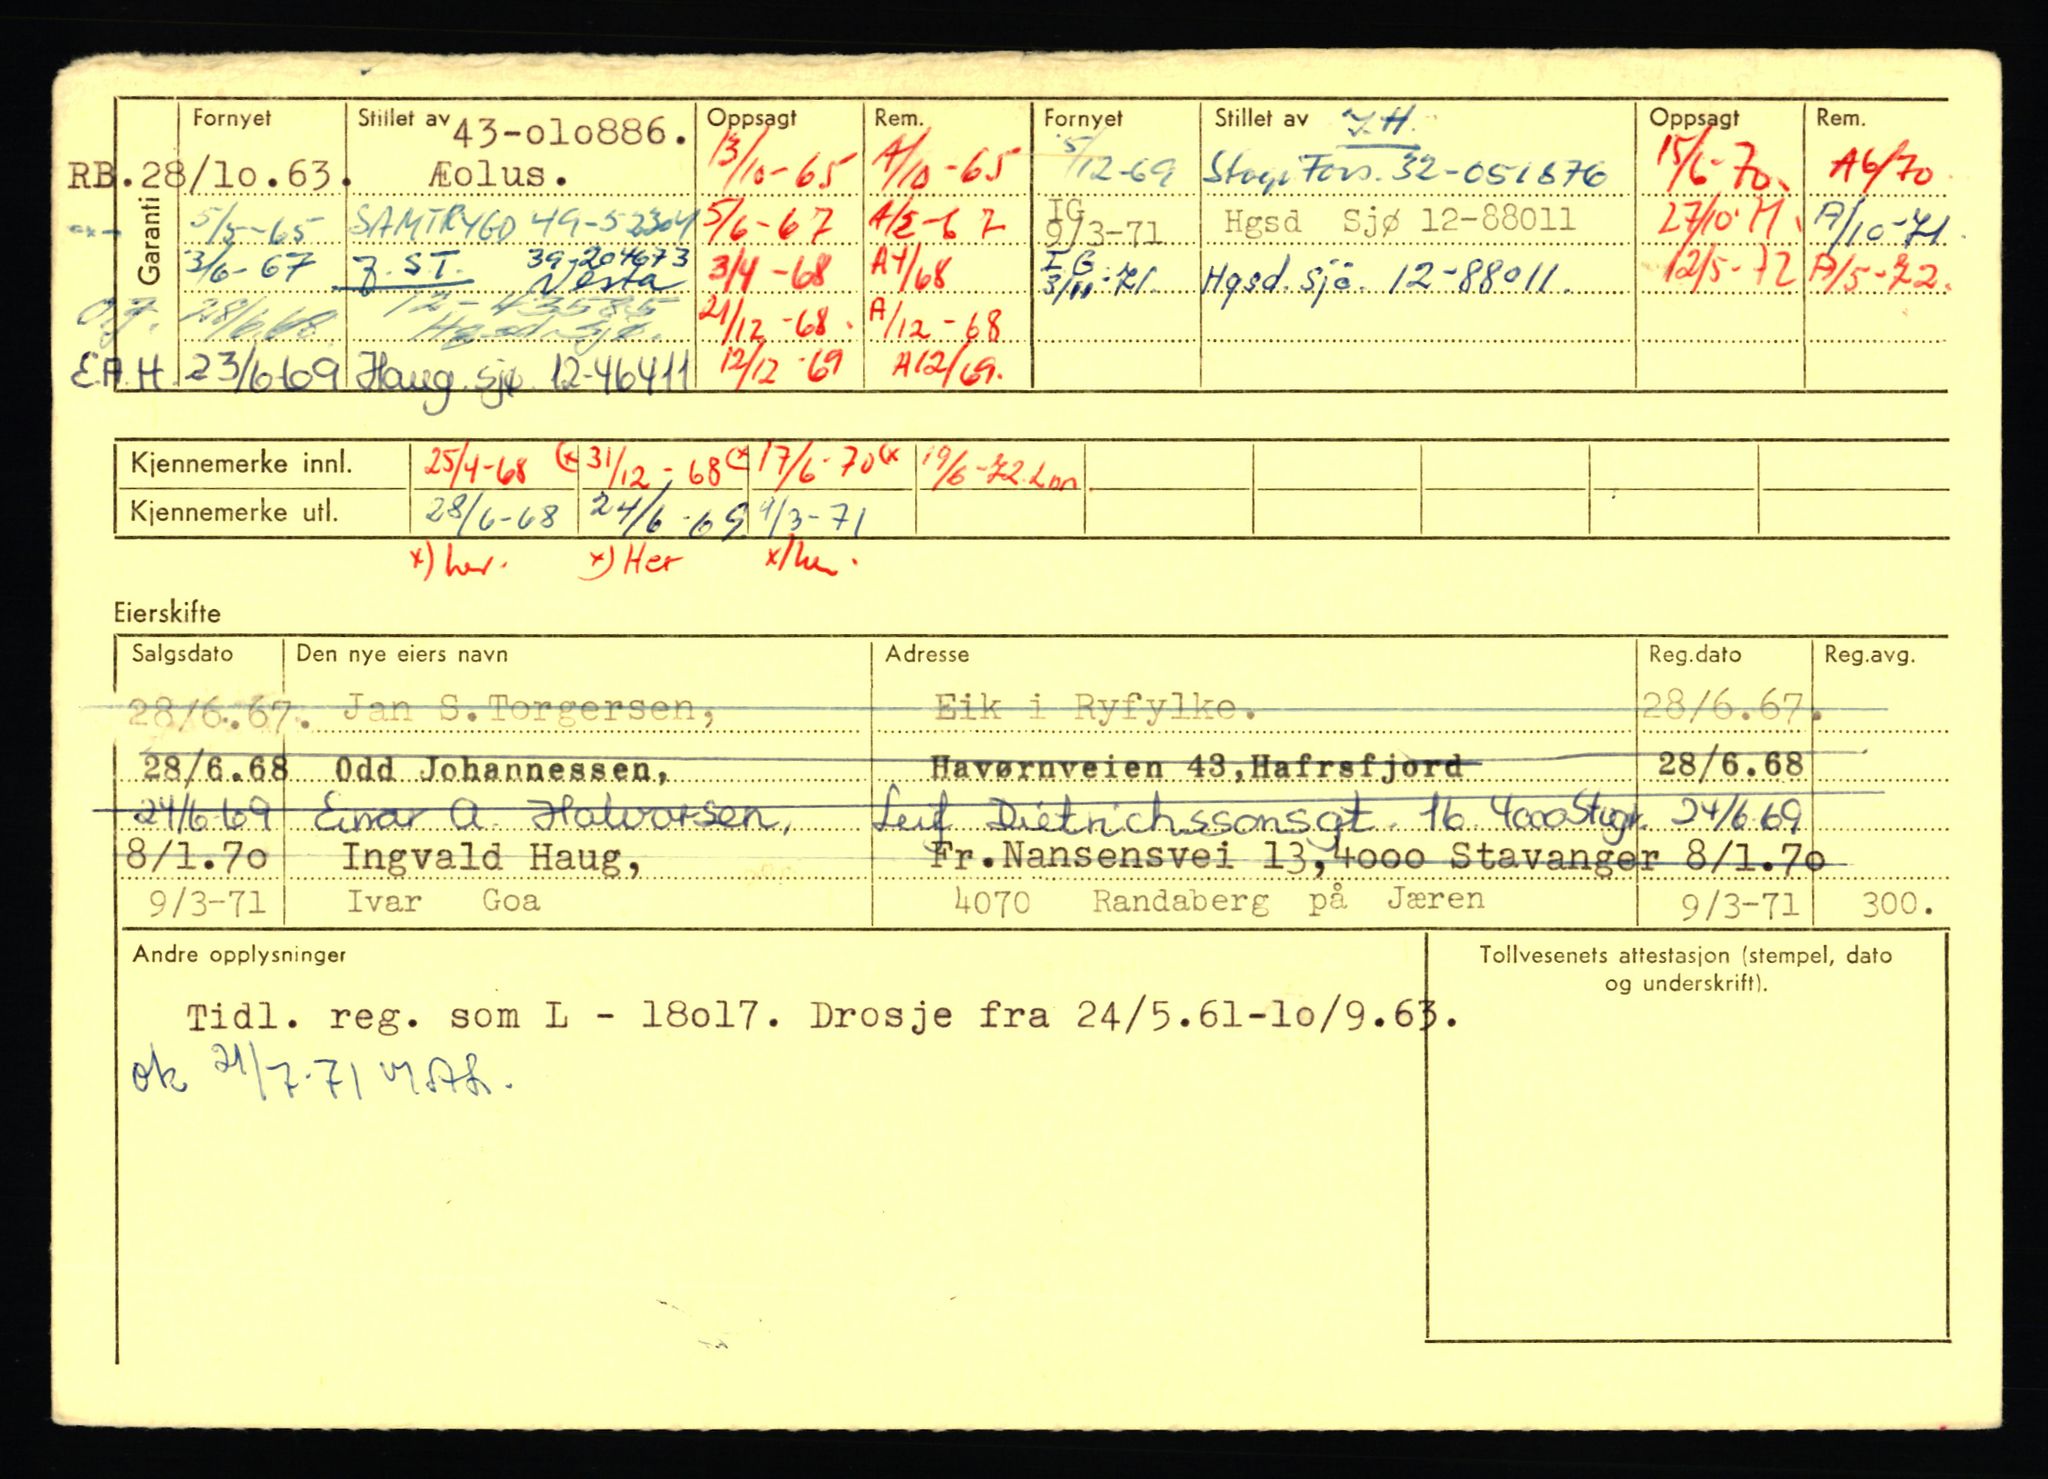 Garanti
Fornyet Stillet av Oppsagt Rem. Fornyet Stillet av J.H. Oppsagt Rem.
43-olo886.
RB.28/lo.63. Æolus. 13/10-65 A/10-65 5/12-69 Fors. 32-051876 15/6-70. A6/70
-"- 5/5-65 SAMTRYGD 49-52304 5/6-67 IG 9/3-71 Hgsd Sjø 12-88011 27/10-71 A/10-71.
3/6-67 J.S.T. 39-204673 Vesta 3/4-68 A4/68 I.G. Hgsd. sjø. 12-88011. 12/5-72 A/5-72.
O.J. 28/6.68. 12-43585 Hgsd. Sjø. 21/12-68. A/12-68
E.A.H. 23/6-69 Haug. sjø 12-46411 12/12-69 A12/69.
Kjennemerke innl. 25/4-68 (x 31/12-68 (x 17/6-70 (x 19/6-72
Kjennemerke utl. 28/6-68 24/6-69 9/3-71
x) her. x) Her x) her.
Eierskifte
Salgsdato Den nye eiers navn Adresse Reg.dato Reg.avg.
28/6.67. Jan S.Torgersen, Eik i Ryfylke. 28/6.67.
28/6.68 Odd Johannessen, Havørnveien 43,Hafrsfjord 28/6.68
24/6-69 Einar A. Halvorsen, Leif Dietrichssonsgt. 16 4000 Stvgr. 24/6 69
8/1.7o Ingvald Haug, Fr.Nansensvei 13,4ooo Stavanger 8/1.7o
9/3-71 Ivar Goa 4070 Randaberg på Jæren 9/3-71 300.
Andre opplysninger Tollvesenets attestasjon (stempel, dato
og underskrift).
Tidl. reg. som L - 18o17. Drosje fra 24/5.61-lo/9.63.
ok 21/7-71